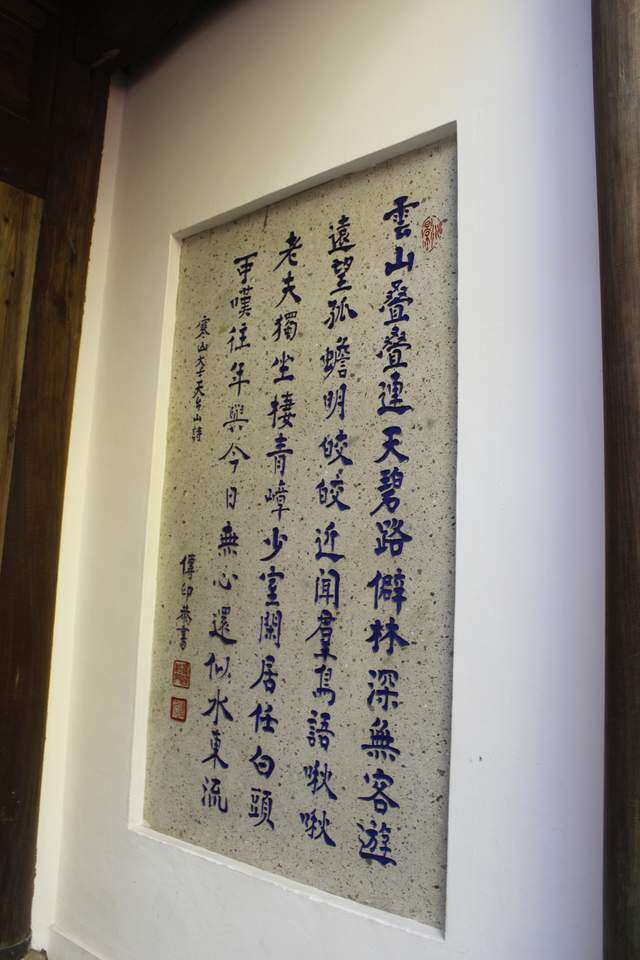 雲山疊疊連天碧路僻林深無客遊
遠望孤蟾明皎皎近聞羣鳥語啾啾
老夫獨坐棲青嶂少室閑居任白頭
可嘆往年與今日無心還似水東流
寒山大士天台山詩
傳印恭書